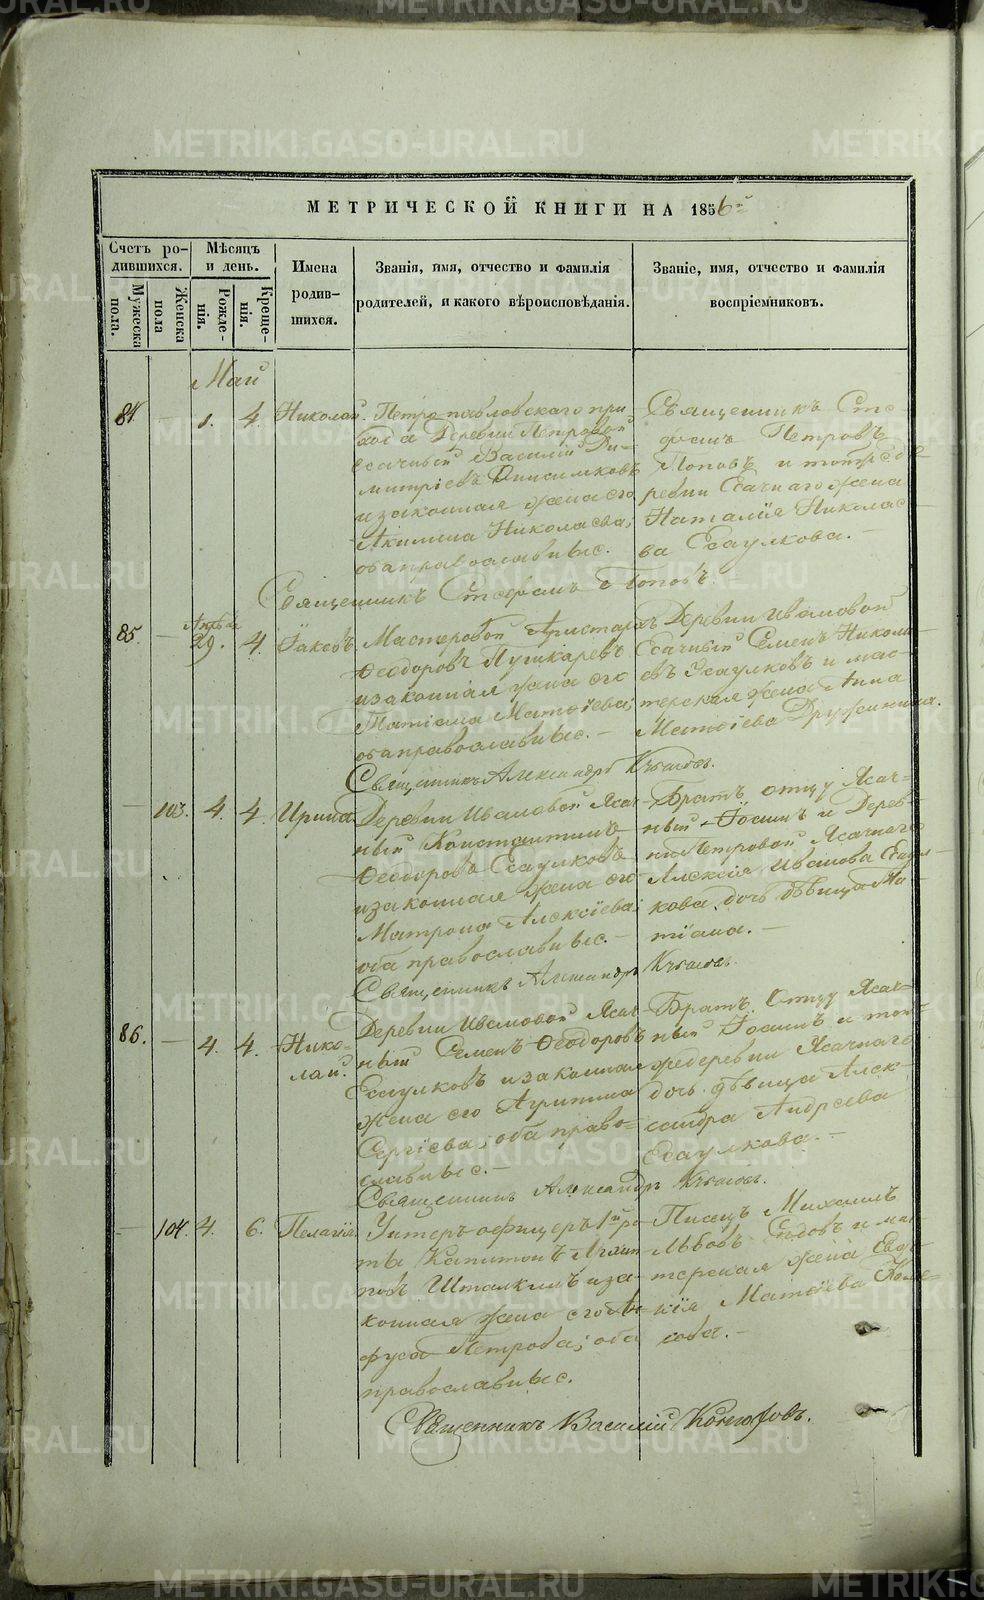 МЕТРИЧЕСКОЙ КНИГИ НА 1856й
Счетъ ро-
дившихся.
Мужеска
пола.
Женска
пола
Мѣсяцъ
и день.
Рожде-
нія.
Креще-
нія.
Имена
родив-
шихся.
Званія, имя, отчество и фамилія
родителей, и какого вѣроисповѣданія.
Званіе, имя, отчество и фамилія
воспріемниковъ.
Май
84. — 1. 4. Николай.
Петропавловскаго при
хода Деревни Петровой
Ясачный Василій Ди-
митріевъ Анисимковъ
и законная жена его
Акилина Николаева;
оба православные.
Священникъ Сте-
фанъ Петровъ
Поповъ и тойже де
ревни Ясачнаго жена
Наталія Никола
ва Есаулкова. —
Священникъ Стефанъ Поповъ.
85. — Апрѣля 29. 4. Іаковъ
Мастеровой Аристархъ
Ѳеодоровъ Пушкаревъ
и законная жена его
Татіана Матѳіева;
оба православные. —
Деревни Ивановой
Ясачный Семенъ Никола
евъ Есаулковъ и мас-
терская жена Анна
Матѳіева Дружинина.
Священникъ Александръ
— 103. 4. 4. Ирина
Деревни Ивановой Ясач-
ный Константинъ
Ѳеодоровъ Есаулковъ
и законная жена его
Матрона Алексіева;
оба православные. —
Братъ отцу Ясач-
ный Іоаннъ и Дерев-
ни Петровой Ясачнаго
Алексія Иванова Есаул-
кова дочь дѣвица Та-
тіана. —
Священникъ Александръ
86. — 4. 4. Нико-
лай.
Деревни Ивановой Ясач-
ный Семенъ Ѳеодоровъ
Есаулковъ и законная
жена его Агрипина
Сергіева; оба право-
славные. —
Братъ отцу Ясач-
ный Іоаннъ и той-
же деревни Ясачнаго
дочь дѣвица Алек-
сандра Андреева
Есаулкова. —
Священникъ Александръ
— 104. 4. 6. Пелагія
Унтеръ-офицеръ 1й ро-
ты Капитонъ
повъ и за-
конная жена его
Петрова; оба
православные.
Писецъ Михаилъ
Львовъ и мас
терская жена Евдо
кія Матѳіева
Священникъ Василій